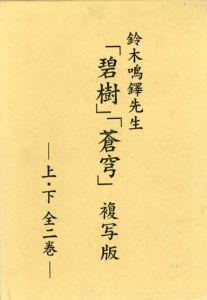 鈴木鳴鐸先生
「碧樹」「蒼穹」 複写版
―上・下 全二巻―